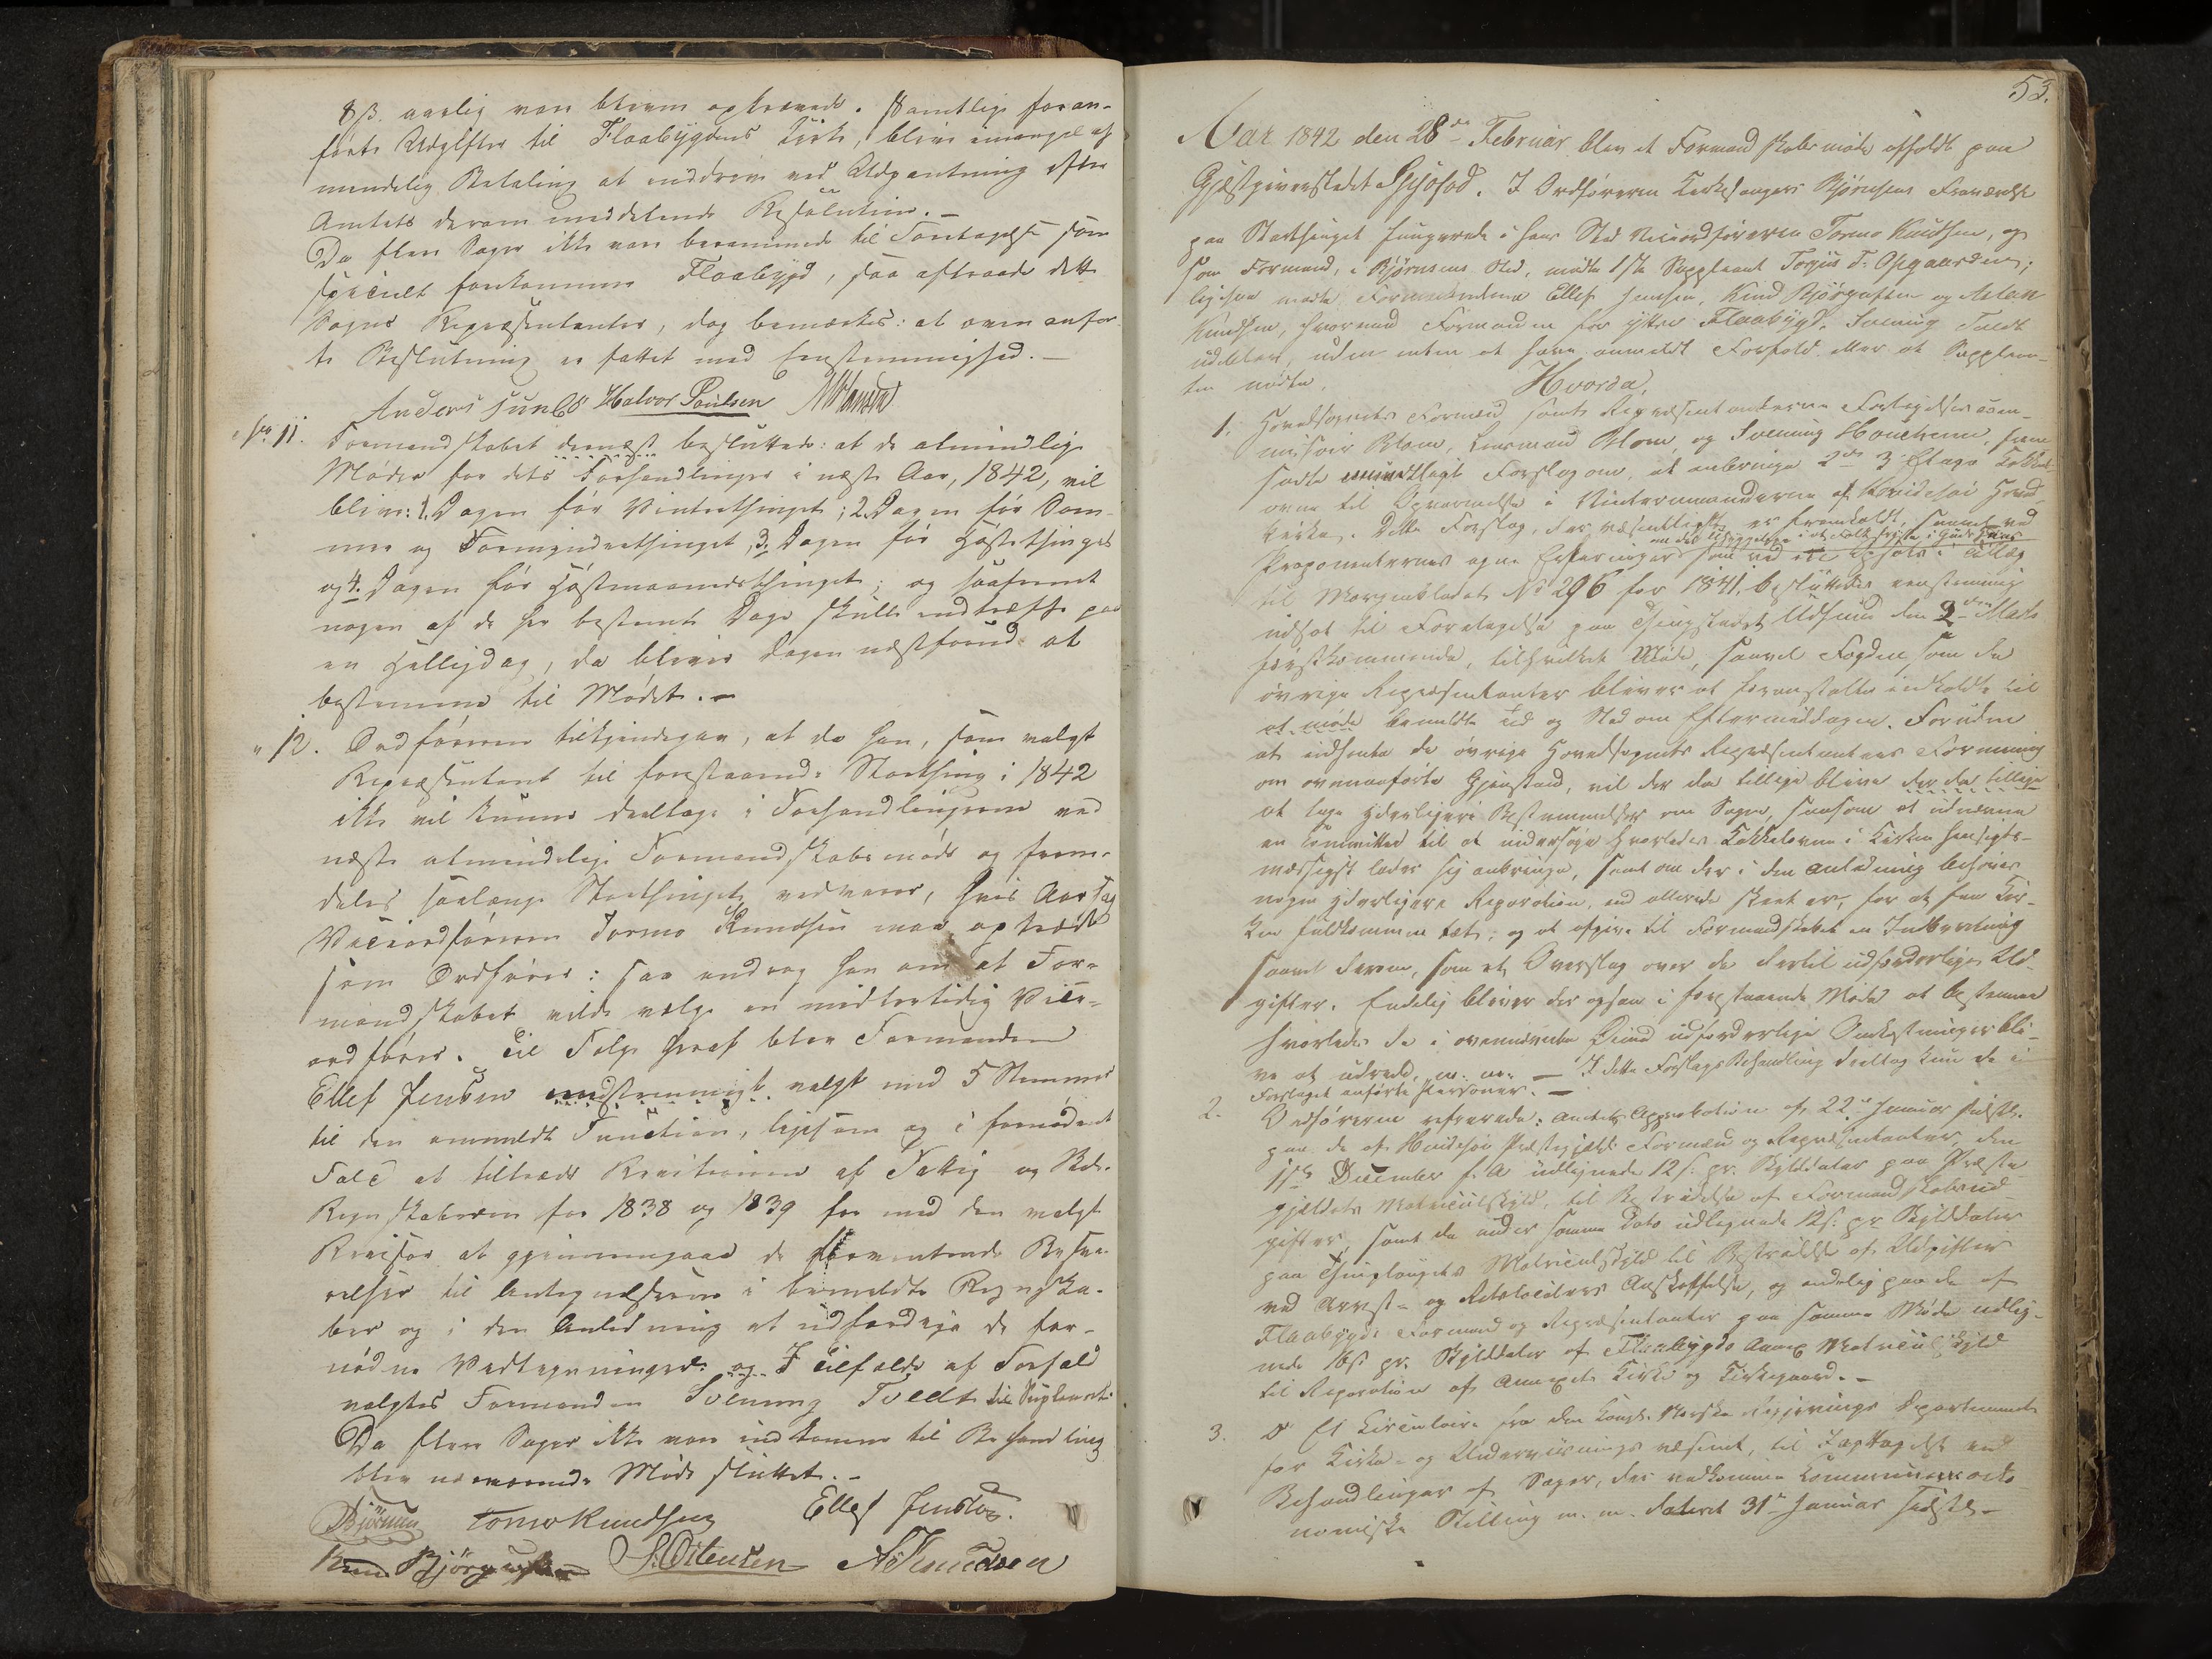 8 ß. aarlig var bleven opkrævede. Samtlige foran-
førte Udgifter til Flaabygdens Kirke, bliver i mangel af
mindelig Betaling at inddrive ved Udpantning efter
Amtets derom meddelende Resolution. –
Da flere Sager ikke vare berammede til Foretagelse som
specielt forekommer Flaabygd, saa aftraadte dette
Sogns Repræsentanter, dog bemærkes: at ovenanfør-
te Beslutning er fattet med Eenstemmighed. –
Anders Halvor Poulsen
No 11. Formandskabet dernæst besluttede: at de almindelige
Møder for dets Forhandlinger i næste Aar, 1842, vil
blive: 1. Dagen før Vintertinget; 2. Dagen før Som-
mer og Formynderthinget, 3. Dagen før Høsttinget
og 4. Dagen før Høstmaanedsthinget; og saafremt
nogen af de her bestemte Dage skulle indtræffe paa
en Helligdag, da bliver Dagen næstforud at
bestemme til Mødet. –
" 12. Ordføreren tilkjendegav, at da han, som valgt
Repræsentant til forestaaende Storthing i 1842
ikke vil kunne deeltage i Forhandlingerne ved
næste almindelige Formandskabsmøde og frem-
deles saalænge Storthinget vedvarer, hvis Aarsag
Viceordføreren Tormo Knudsen maa optræde
som Ordfører: saa androg han om at For-
mandskabet vilde vælge en midlertidig Vice-
ordfører. Til Følge heraf blev Formanden
Ellef Jensen eenstemmigt valgt med 5 Stemmer
til den anmeldte Function, ligesom og i fornødent
Fald at tiltræde Revisionen af Fattig og Skole-
Regnskaberne for 1838 og 1839 for med den valgte
Revisor at gjennemgaae de forventende Besva-
relser til Antegnelserne i bemeldte Regnska-
ber og i den Anledning at udfærdige de for-
nødne Vedtegninger. og I Tilfælde af Forfald
valgtes Formanden Svenung Tvedt til Supleant.
Da flere Sager ikke vare indkomne til Behandling
blev nærværende Møde sluttet. –
Bjørnsen Tormo Knudsen Ellef Jensen.
Knud Bjørgufsen S. Ostensen A. Knudsen
53.
Aar 1842 den 28de Februar blev et Formandskabsmøde afholdt paa
Gjæstgiverstedet . I Ordføreren Kirkesanger Bjørnsens Fraværelse
paa Storthinget fungerede i hans Sted Viceordføreren Tormo Knudsen, og
som Formand, i Bjørnsens Sted, mødte 1ste Suppleant Torjus T. ;
ligesaa mødte Formændene Ellef Jensen, Knud Bjørgufsen og Aslak
Knudsen, hvorimod Formanden for ytter Flaabygd, Svenung Tvedt
udeblev, uden enten at have anmeldt Forfald eller at Supplean-
ten mødte.
Hvorda,
1. Hovedsognets Formænd samt Repræsentanterne Forligelsescom-
missair Blom, Lensmand Blom, og Svenung Haukvme, frem-
satte Forslag om, at anbringe 2de 3 Etages Kakkel-
ovne til Opvarmelse i Vintermaanderne af Hvidesøe Hoved-
kirke. Dette Forslag, der væsentligst er fremkaldt, saavel ved
Proponenternes egne Erfaringer som ved i Tillæg
til Morgenbladet No 296 for 1841. besluttedes eenstemmig
udsat til Foretagelse paa Thingstedet Utsund den 2den Marts
førstkommende, tilhvilket Møde, saavel Fogden som de
øvrige Repræsentanter bliver at foranstalte indkaldte til
at møde bemeldte Tid og Sted om Eftermiddagen. Foruden
at indhente de øvrige Hovedsognets Repræsentanters Formening
om ovenanførte Gjenstand, vil der da tillige blive der da tillige
at tage yderligere Bestemmelser om Sagen, saasom at udnævne
en Committee til at undersøge hvorledes Kakkelovne i Kirken hensigts-
mæssigst lader sig anbringe, samt om der i den Anledning behøves
nogen yderligere Reparation, end allerede skeet er, for at faa Kir-
ken fuldkommen tæt; og at afgive til Formandskabet en Indberetning
saavel derom, som et Overslag over de dertil udforderlige Ud-
gifter. Endelig bliver der ogsaa i forestaaende Møde at bestemme
hvorledes de i ovennævnte Øiemed udforderlige Omkostninger bli-
ve at udrede, m. m. – I dette Forslags Behandling deeltog kun de i
Forslaget anførte Personer. –
2. Ordføreren refererede: Amtets Approbation af 22de Januar sidstl.
paa de af Hvidesøe Præstegjelds Formænd og Repræsentanter den
1ste December f. A. udlignede 12 s. pr. Skylddaler paa Præste-
gjeldets Matriculskyld, til Bestridelse af Formandskabsud-
gifter, samt de under samme Dato udlignede 12 s. pr Skylddaler
paa Thinglaugets Matriculskyld til Bestridelse af Udgifter
ved Arrest- og Retslocalers Anskaffelse, og endelig paa de af
Flaabygds Formænd og Repræsentanter paa samme Møde udlig-
nede 16 s pr. Skylddaler af Flaabygds Annex Matriculskyld
til Reparation af Annexets Kirke og Kirkegaard. –
3. Et Circulaire fra den Kongl. Norske Regjerings Departement
for Kirke- og Underviisningsvæsenet, til Iagttagelse ved
Behandlinger af Sager, der vedkomme Communernes oeko-
nomiske Stilling m. m. dateret 31te Januar sidstl. –